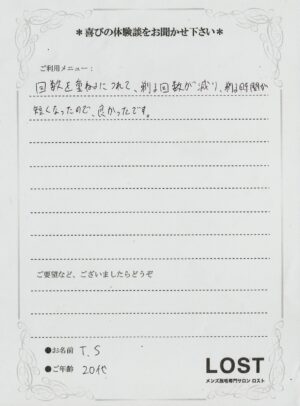 *喜びの体験談をお聞かせ下さい*
ご利用メニュー:
回数を重ねるにつれて、剃る回数が減り、剃る時間が
短くなったので、良かったです。
ご要望など、ございましたらどうぞ
●お名前 T.S
●ご年齢 20代
LOST
メンズ脱毛専門サロン ロスト